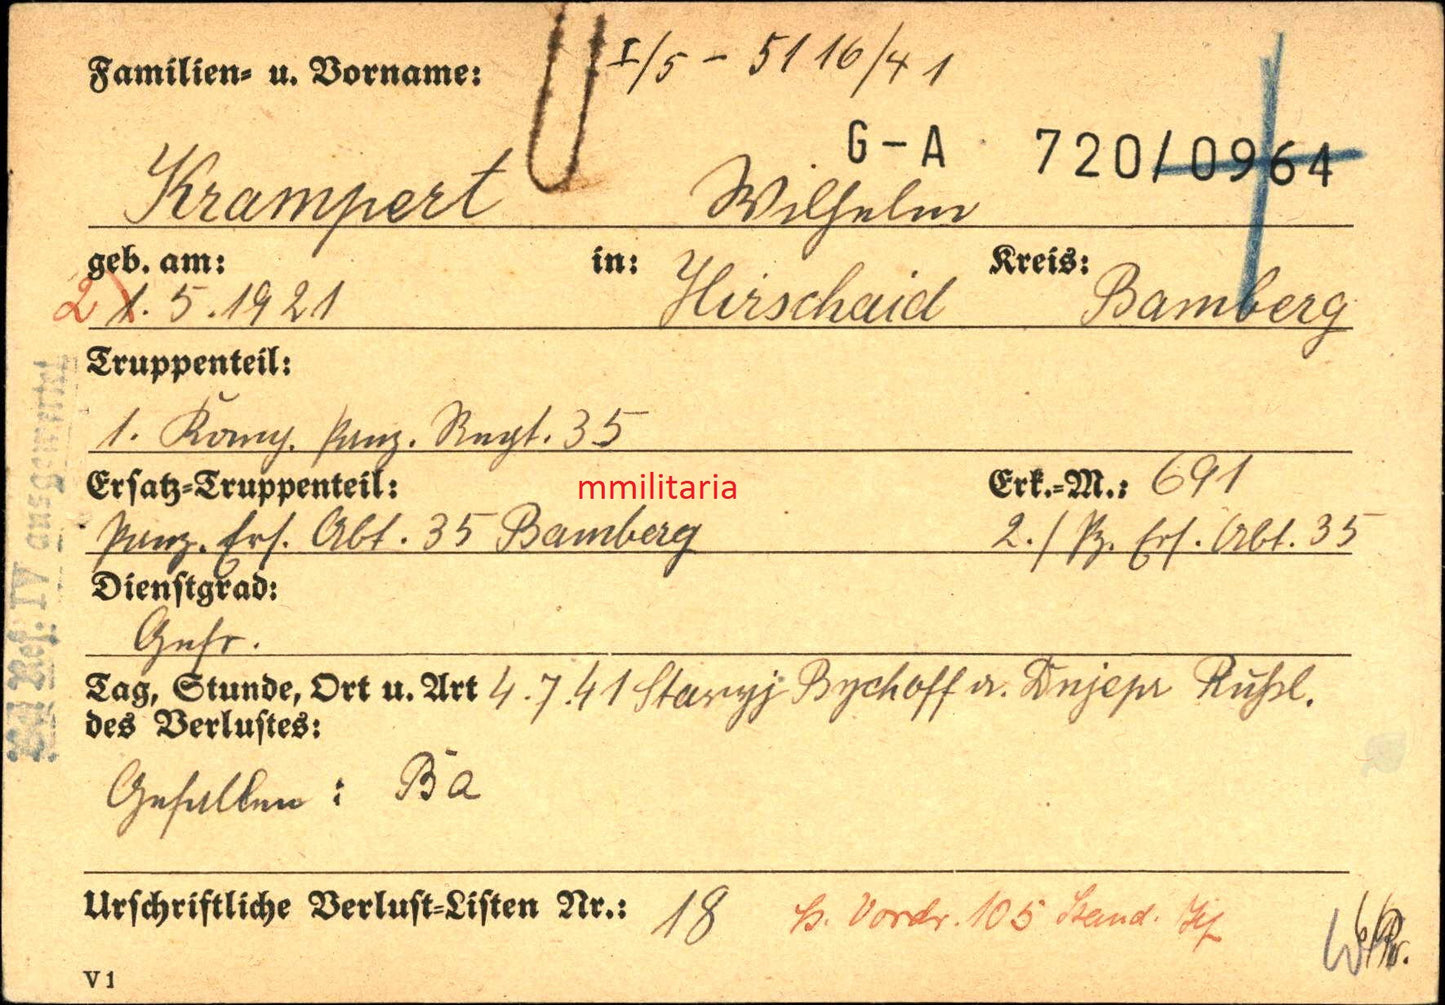 Familien- u. Vorname: I/5 - 5116/41
G-A 720/0964
Krampert Wilhelm
geb. am: in: Kreis:
2) 1.5.1921 Hirschaid Bamberg
Truppenteil:
1. Komp. Panz. Regt. 35
Ersatz-Truppenteil: mmilitaria Erk.-M.: 691
Panz. Ers. Abt. 35 Bamberg 2./Pz. Ers. Abt. 35
Dienstgrad:
Gefr.
Tag, Stunde, Ort u. Art 4.7.41 Staryj Bychoff a. Dnjepr Rußl.
des Verlustes:
Gefallen: Ba
Urschriftliche Verlust-Listen Nr.: 18 s. Vordr. 105
V 1
Ref. IV ausgewertet